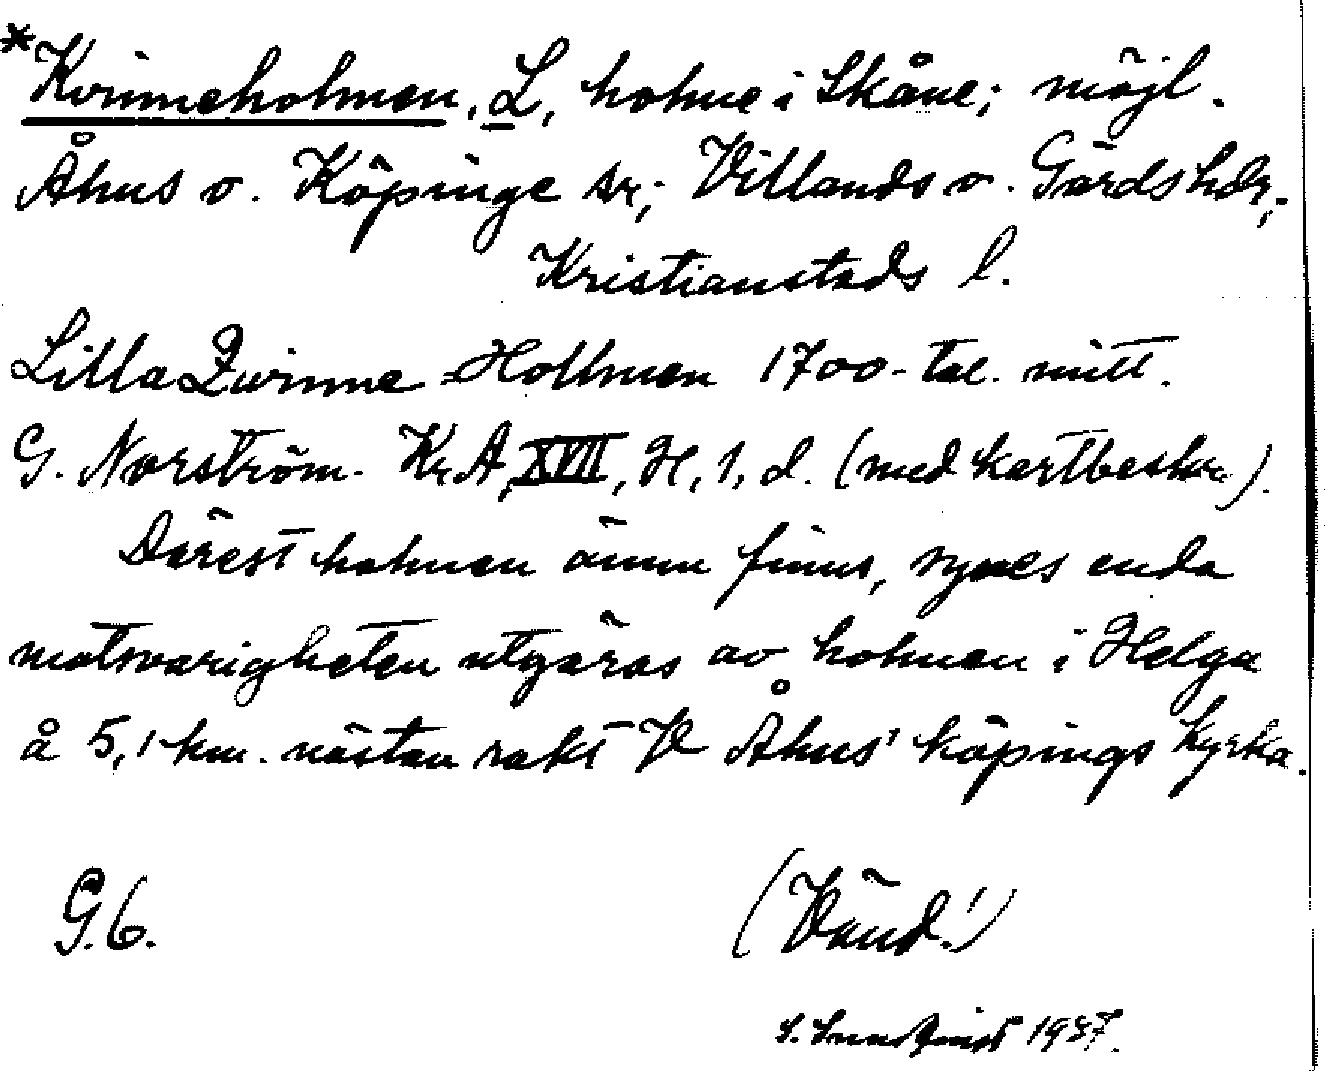 *Kvinneholmen, L, holme i Skåne; möjl.
Åhus o. Köpinge sr; Villands o. Gärds hdr;
Kristianstads l.
Lilla Quinne-Hollmen 1700-tal. mitt.
G. Norström. Kr.A, XVII, H, 1, d. (med kartbeskr.).
Därest holmen ännu finns, synes enda
motsvarigheten utgöras av holmen i Helga
å 5,1 km. nästan rakt V Åhus' köpings kyrka.
G. 6.
(Vänd!)
S. Lundquist 1937.